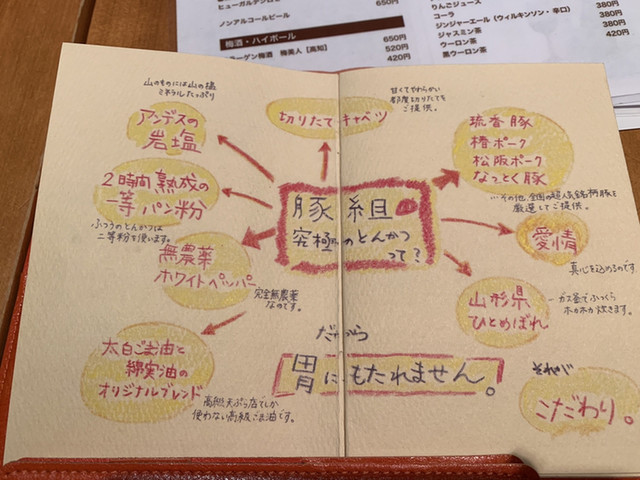 ヒューガルデンホワイト
650円
ノンアルコールビール
梅酒・ハイボール
650円
コラーゲン梅酒 梅美人【高知】
520円
420円
りんごジュース
コーラ
380円
ジンジャーエール(ウィルキンソン・辛口)
380円
ジャスミン茶
380円
ウーロン茶
420円
黒ウーロン茶
山のものには山の塩
ミネラルたっぷり
アンデスの
岩塩
2時間熟成の
一等パン粉
ふつうのとんかつは
二等粉を使います。
無農薬
ホワイトペッパー
完全無農薬
なのです。
太白ごま油と
綿実油の
オリジナルブレンド
高級天ぷら店でしか
使わない高級ごま油です。
切りたてキャベツ
甘くてやわらかい
都度切りたてを
ご提供。
豚組
究極のとんかつ
って?
だから
胃にもたれません。
琉香豚
橙ポーク
松阪ポーク
なっとく豚
…その他、全国の超人気銘柄豚を
厳選してご提供。
愛情
真心を込めるのです。
山形県
ひとめぼれ
ガス釜でふっくら
ホカホカ炊きます。
それが
こだわり。